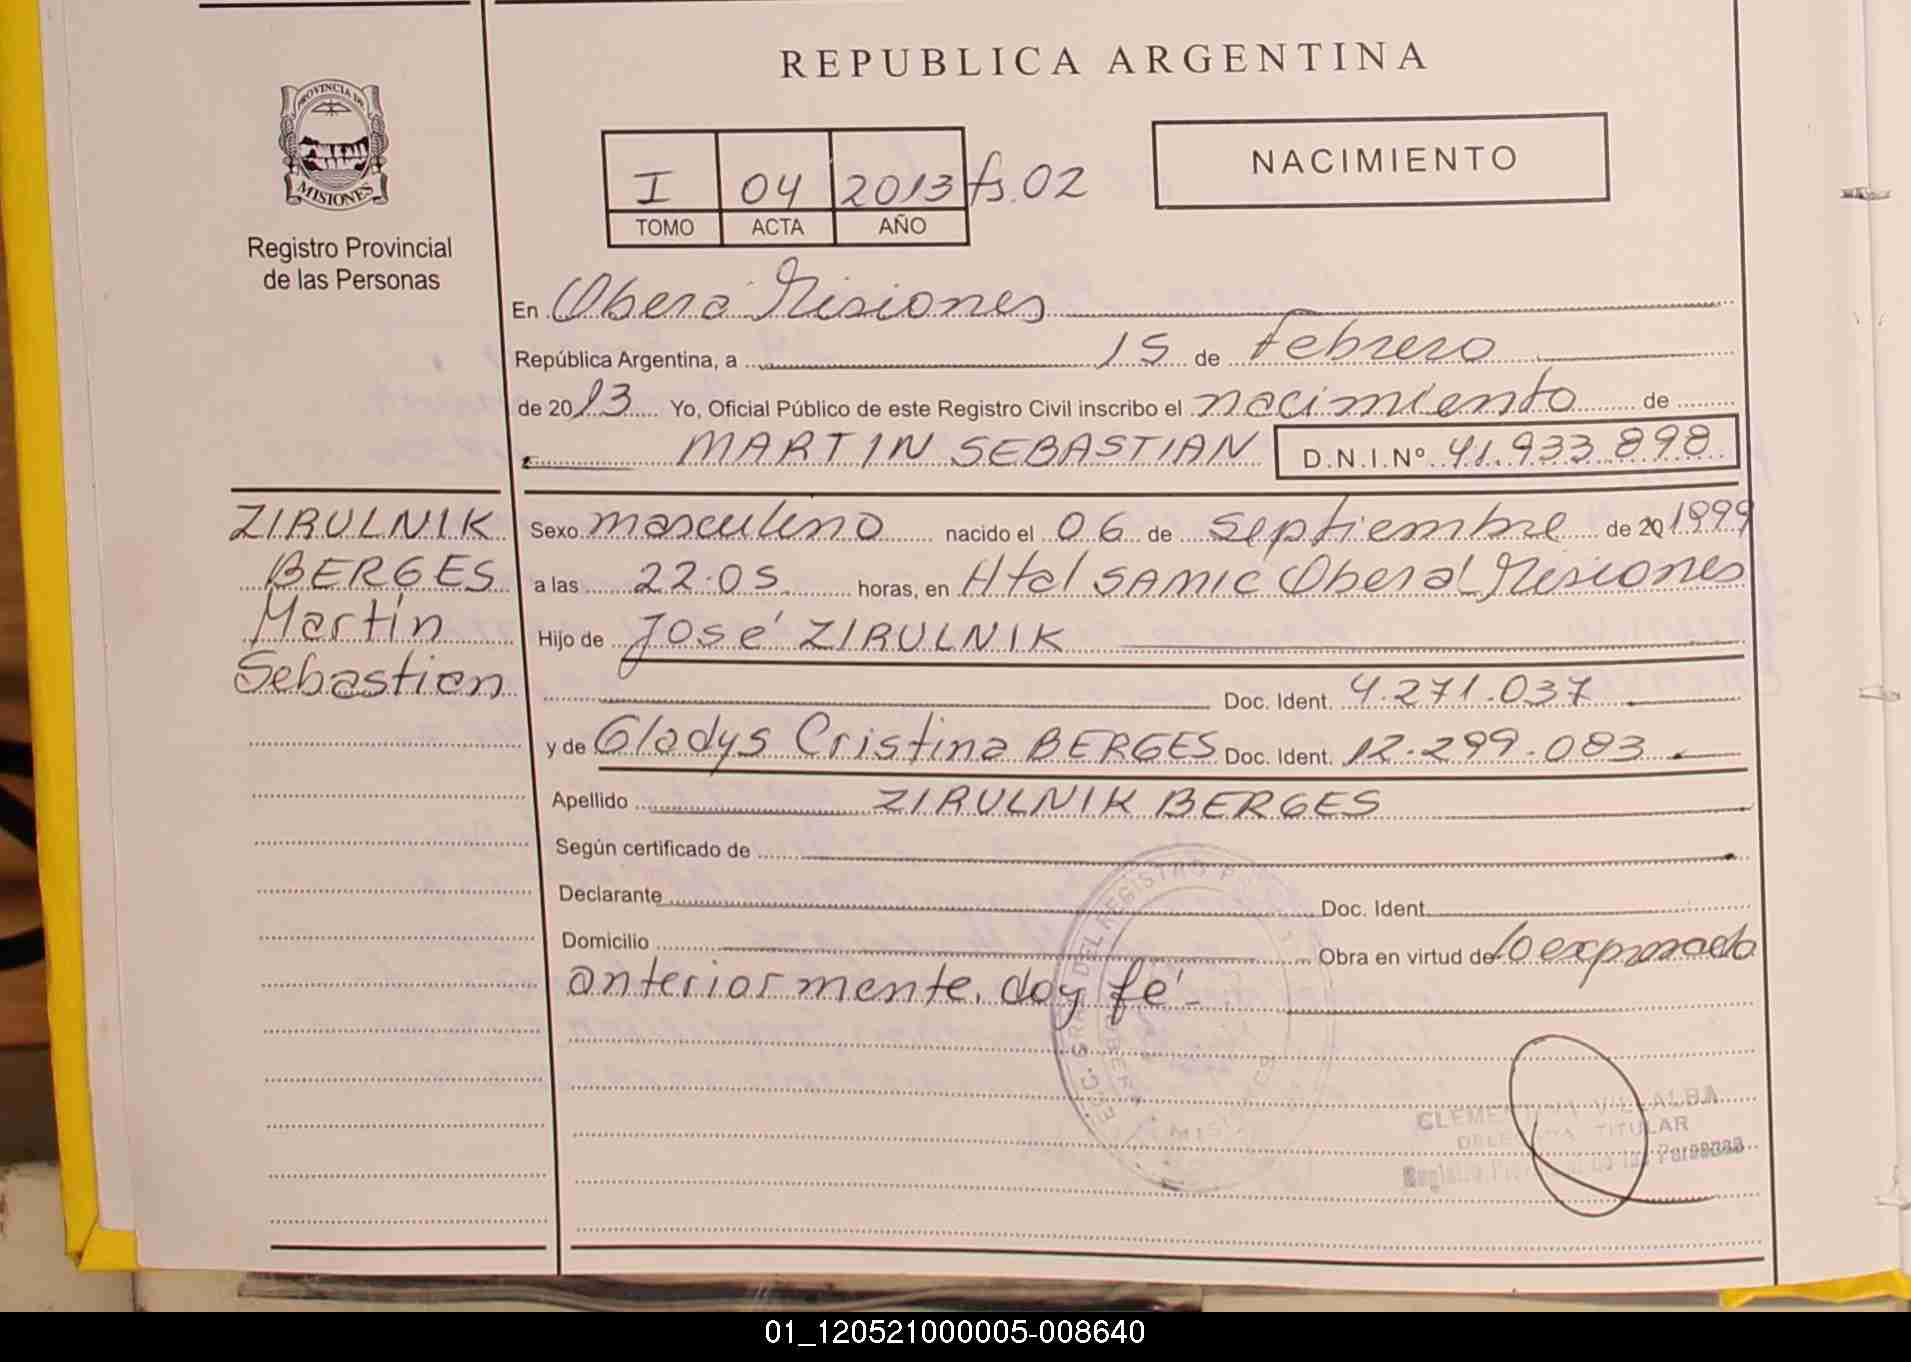 REPUBLICA ARGENTINA
PROVINCIA DE
MISIONES
Registro Provincial
de las Personas
NACIMIENTO
I 04 2013 fs. 02
TOMO ACTA AÑO
En Obera Misiones
República Argentina, a 15 de Febrero
de 2013 Yo, Oficial Público de este Registro Civil inscribo el nacimiento de
MARTIN SEBASTIAN D.N.I.Nº 41.933.898
ZIRULNIK
BERGES
Martín
Sebastian
Sexo masculino nacido el 06 de septiembre de 20 1999
a las 22:05 horas, en Htal SAMIC Oberá Misiones
Hijo de José ZIRULNIK
Doc. Ident. 4.271.037
y de Gladys Cristina BERGES Doc. Ident. 12.299.083
Apellido ZIRULNIK BERGES
Según certificado de
Declarante Doc. Ident.
Domicilio Obra en virtud de lo expresado
anteriormente, doy fé
DEL REGISTRO
VILLALBA
TITULAR
de las Personas
01_120521000005-008640